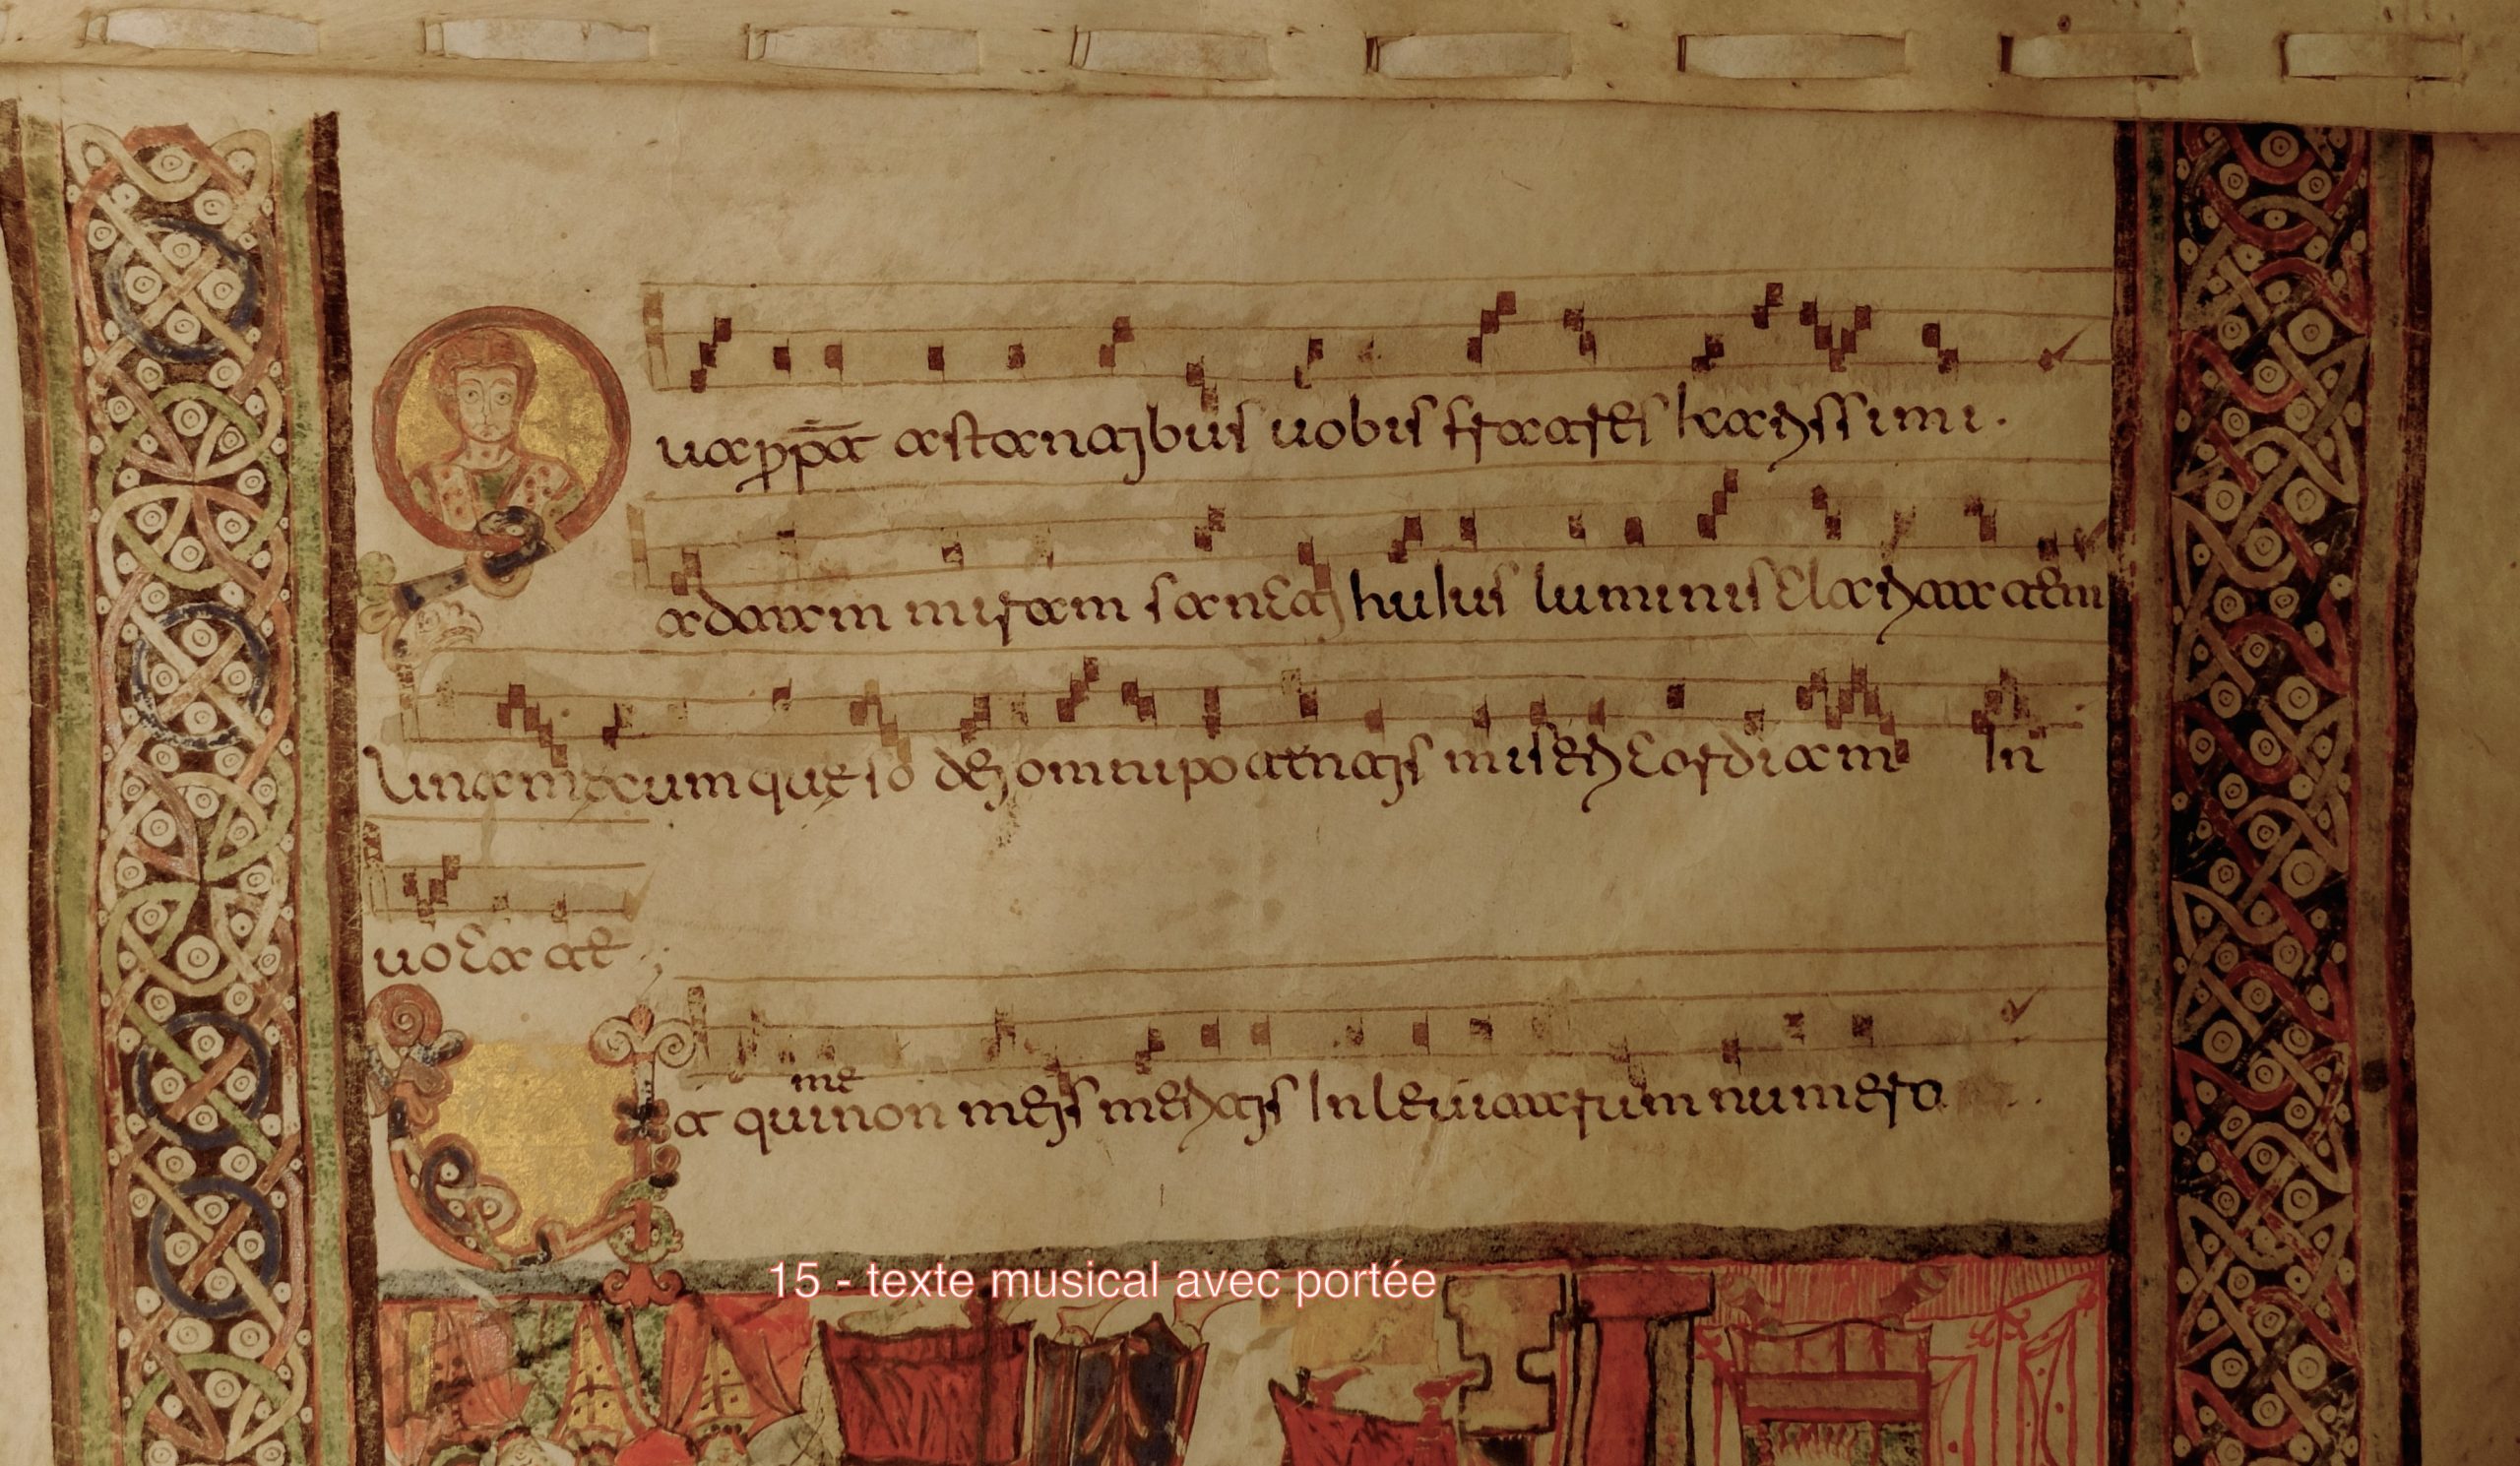 Quapp̄t astantibus uobis fratres karissimi.
adtam miram sancti huius luminis claritatem
Unamecum queso dei omnipotentis misericordiam In
uocate ;
me
Ut qui non meis meritis In leuitarum numero
15 - texte musical avec portée